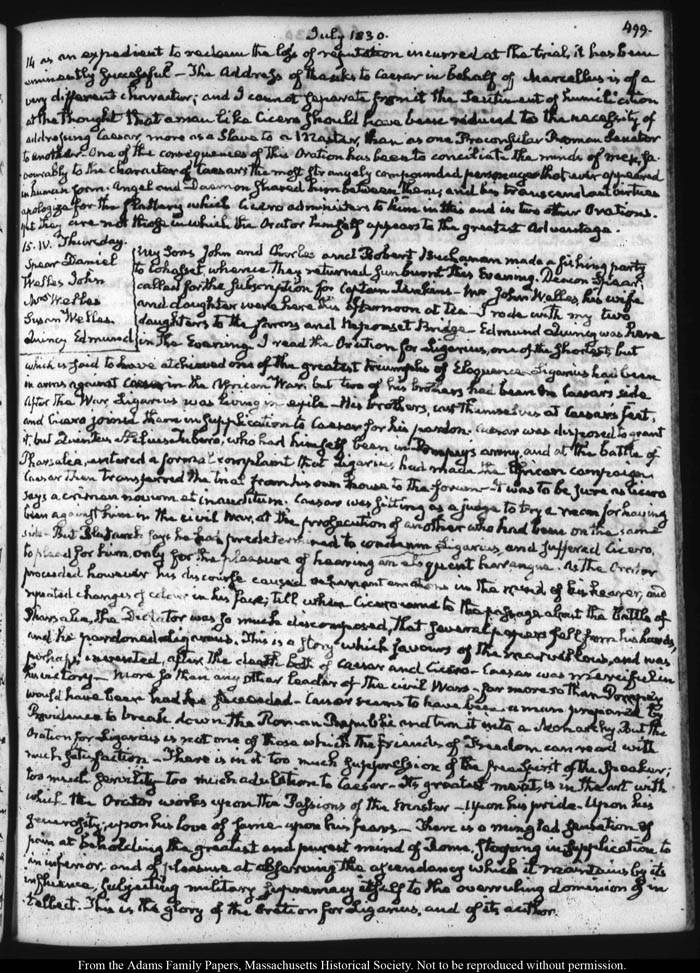 July 1830.
499.
14 as an expedient to redeem the loss of reputation incurred at the trial, it has been
eminently successful — The Address of thanks to Caesar in behalf of Marcellus is of a
very different character; and I cannot separate from it the sentiment of humiliation
at the thought that a man like Cicero should have been reduced to the necessity of
addressing Caesar, more as a Slave to a Master, than as one Proconsular Roman Senator
to another. One of the consequences of this Oration has been to conciliate the minds of men, fa-
vourably to the character of Caesar, the most strangely compounded personage that ever appeared
in human form. Angel and Daemon shared him between them, and his transcendent virtues
apologize for the flattery which Cicero administers to him in this and in two other Orations.
yet they are not those in which the Orator himself appears to the greatest advantage.
15. IV. Thursday.
Spear Daniel
Welles John
Mrs Welles
Susan Welles
Quincy Edmund
My Sons John and Charles and Robert Buchanan made a fishing party
to Cohasset, whence they returned sunburnt this Evening. Deacon Spear
called for the subscription for Captain Jenkins. Mr John Welles, his wife
and daughter were here this afternoon at tea. I rode with my two
daughters to the farms and Neponset Bridge. Edmund Quincy was here
in the Evening. I read the Oration for Ligarius, one of the shortest, but
which is said to have atchieved one of the greatest triumphs of Eloquence. Ligarius had been
in arms against Caesar in the African War, but two of his brothers had been on Caesar's side
After the War Ligarius was living in exile — His brothers, cast themselves at Caesars feet,
and Cicero joined them in supplication to Caesar for his pardon. Caesar was disposed to grant
it, but Quintus Aelius Tubero, who had himself been in Pompey's army, and at the battle of
Pharsalia, entered a formal complaint that Ligarius had made the African campaign
Caesar then transferred the trial from his own house to the forum — It was to be sure as Cicero
says a crimen novum et inauditum. Caesar was sitting as a judge to try a man for having
been against him in the civil War, at the prosecution of another who had been on the same
side. But Plutarch says he had predetermined to condemn Ligarius, and suffered Cicero,
to plead for him, only for the pleasure of hearing an eloquent harrangue. As the Orator
proceeded however his discourse caused vehement emotions in the mind of his hearer, and
repeated changes of colour in his face; till when Cicero came to the passage about the battle of
Pharsalia, the Dictator was so much discomposed, that several papers fell from his hands,
and he pardoned Ligarius. This is a story which favours of the marvellous, and was
perhaps invented, after the death both of Caesar and Cicero. Caesar was merciful in
his victory — more so than any other leader of the civil Wars — far more so than Pompey
would have been had he succeeded — Caesar seems to have been a man prepared by
Providence to break down the Roman Republic and turn it into a Monarchy. But the
Oration for Ligarius is not one of those which the friends of Freedom can read with
much satisfaction — There is in it too much suppression of the free spirit of the speaker;
too much servility — too much adulation to Caesar — Its greatest merit, is in the art with
which the Orator works upon the Passions of the Master — Upon his pride — Upon his
generosity, upon his love of fame — upon his fears — There is a mingled sensation of
pain at beholding the greatest and purest mind of Rome, stooping in supplication to
an inferior, and of pleasure at observing the ascendancy which it maintains by its
influence, subjecting military supremacy itself to the overruling dominion of in-
tellect. This is the glory of the Oration for Ligarius, and of its author.
From the Adams Family Papers, Massachusetts Historical Society. Not to be reproduced without permission.